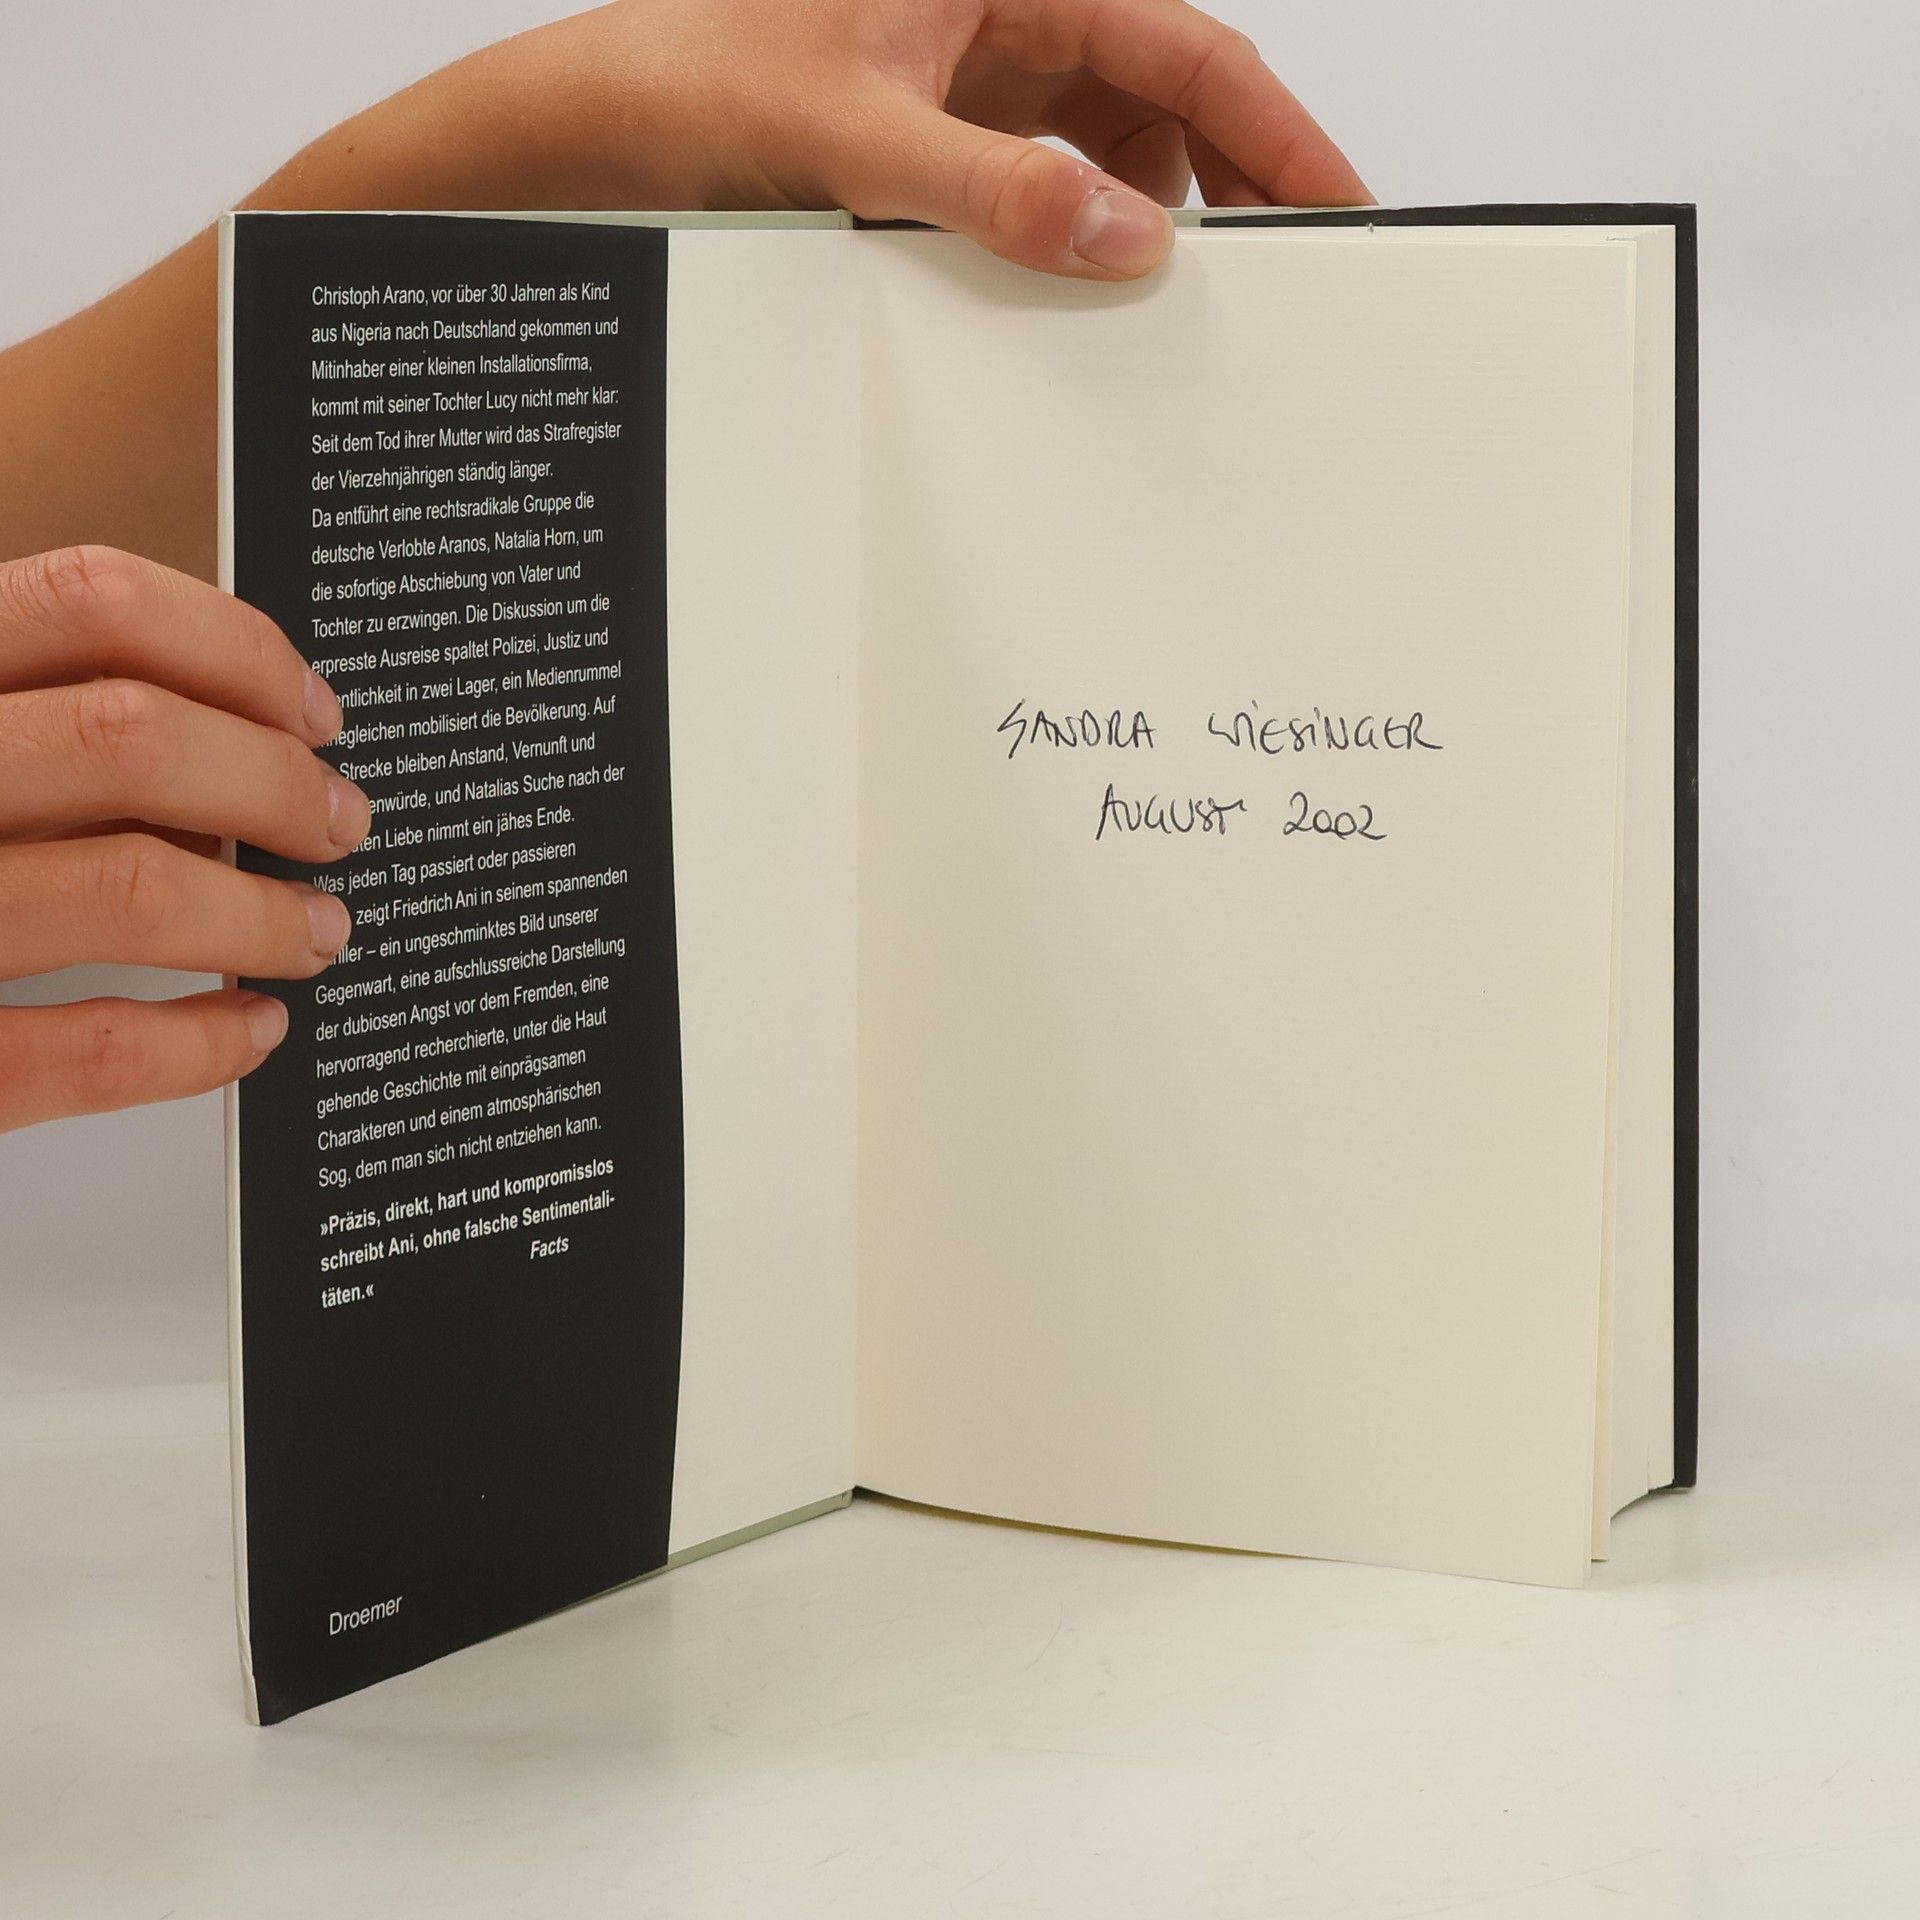 Christoph Arano, vor über 30 Jahren als Kind
aus Nigeria nach Deutschland gekommen und
Mitinhaber einer kleinen Installationsfirma,
kommt mit seiner Tochter Lucy nicht mehr klar:
Seit dem Tod ihrer Mutter wird das Strafregister
der Vierzehnjährigen ständig länger.
Da entführt eine rechtsradikale Gruppe die
deutsche Verlobte Aranos, Natalia Horn, um
die sofortige Abschiebung von Vater und
Tochter zu erzwingen. Die Diskussion um die
erpresste Ausreise spaltet Polizei, Justiz und
in zwei Lager, ein Medienrummel
mobilisiert die Bevölkerung. Auf
Strecke bleiben Anstand, Vernunft und
und Natalias Suche nach der
Liebe nimmt ein jähes Ende.
Was jeden Tag passiert oder passieren
zeigt Friedrich Ani in seinem spannenden
– ein ungeschminktes Bild unserer
Gegenwart, eine aufschlussreiche Darstellung
der dubiosen Angst vor dem Fremden, eine
hervorragend recherchierte, unter die Haut
gehende Geschichte mit einprägsamen
Charakteren und einem atmosphärischen
Sog, dem man sich nicht entziehen kann.
»Präzis, direkt, hart und kompromisslos
schreibt Ani, ohne falsche Sentimentali-
täten.«
Facts
Droemer
SANDRA WIESINGER
AUGUST 2002